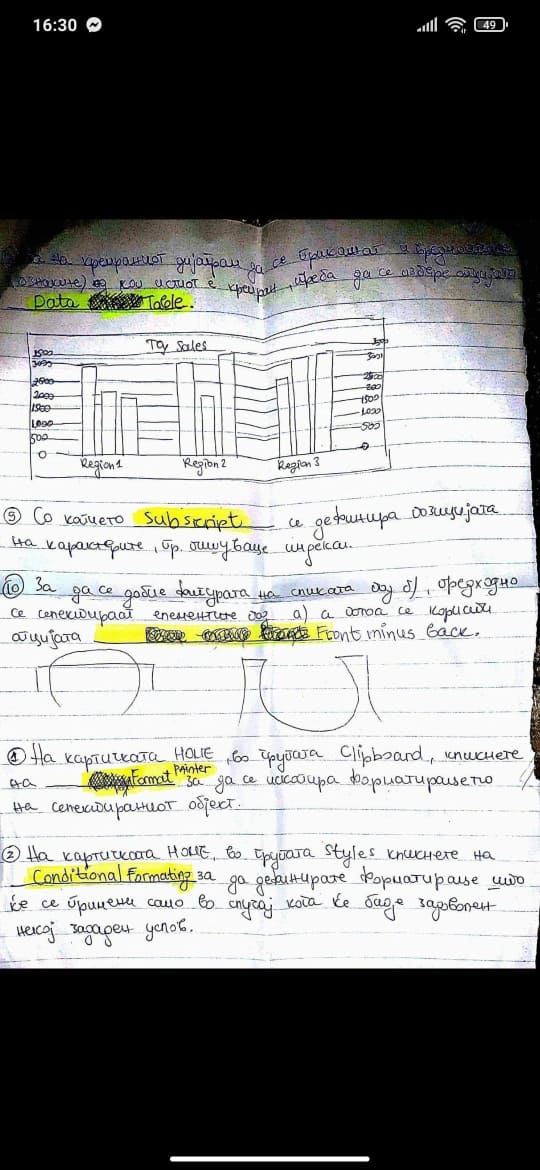 16:30
49
на креираниот дијаграм да се прикажат и
кои истиот е креиран, треба да се избере опцијата
Data Table.
Toy Sales
3500
3000
2500
2000
1500
1000
500
0
3000
2500
200
1500
1000
500
0
Region 1 Region 2 Region 3
⑤ Со копчето subscript се дефинира позицијата
на карактерите, пр. пишување индекси.
⑩ За да се добие фигурата на сликата под б), предходно
се селектираат елементите под а) а потоа се користи
опцијата Front minus back.
① На картичката HOME, во групата Clipboard, кликнете
на Format Painter за да се ископира форматирањето
на селектираниот објект.
② На картичката HOME, во групата Styles кликнете на
Conditional Formating за да дефинирате форматирање што
ќе се примени само во случај кога ќе биде задоволен
некој зададен услов.